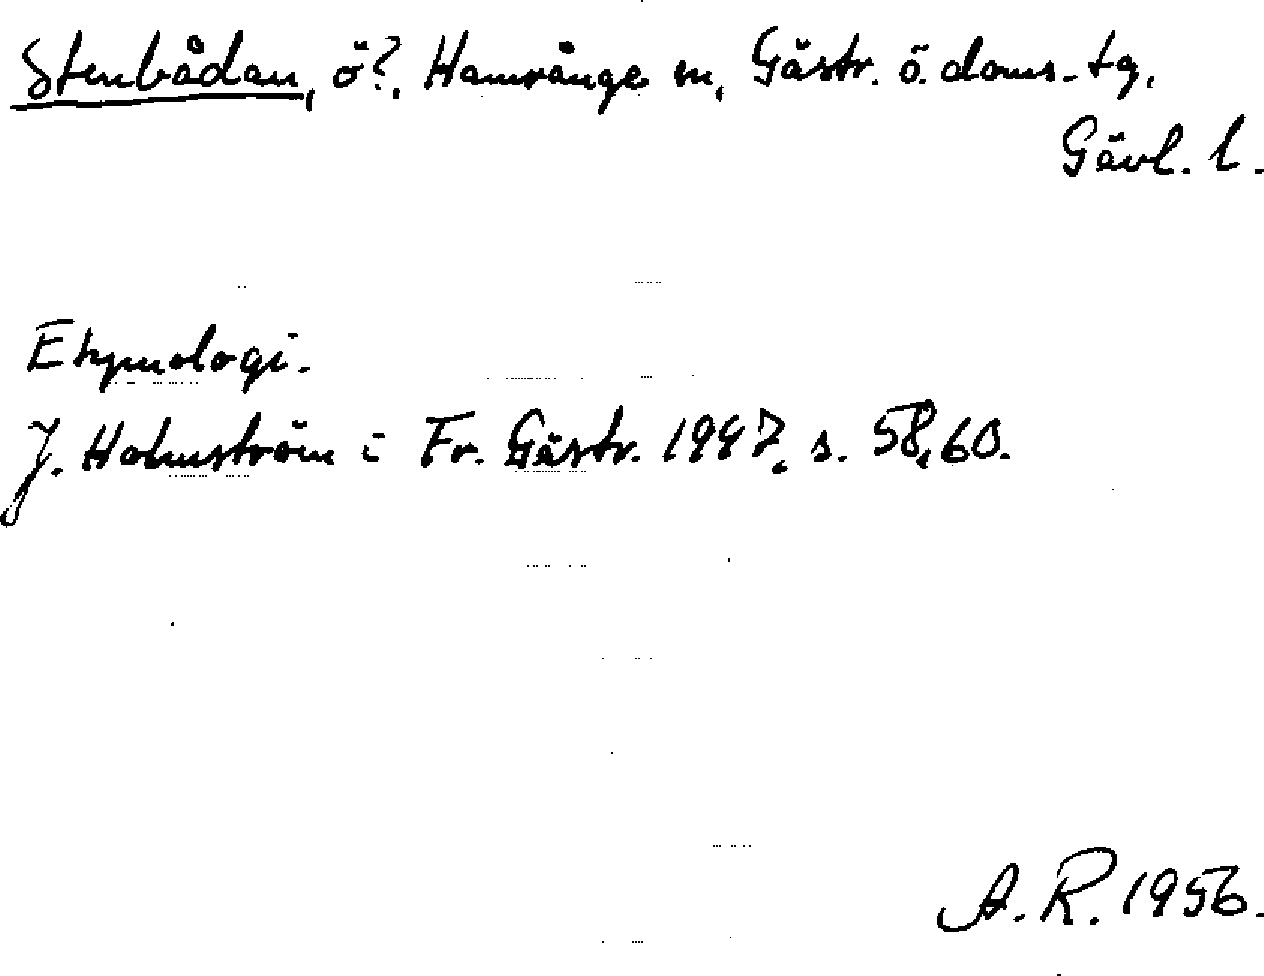 Stenbådan, ö?, Hamrånge sn, Gästr. ö. doms-tg,
Gävl. l.
Etymologi.
J. Holmström i Fr. Gästr. 1947, s. 58, 60.
A. R. 1956.